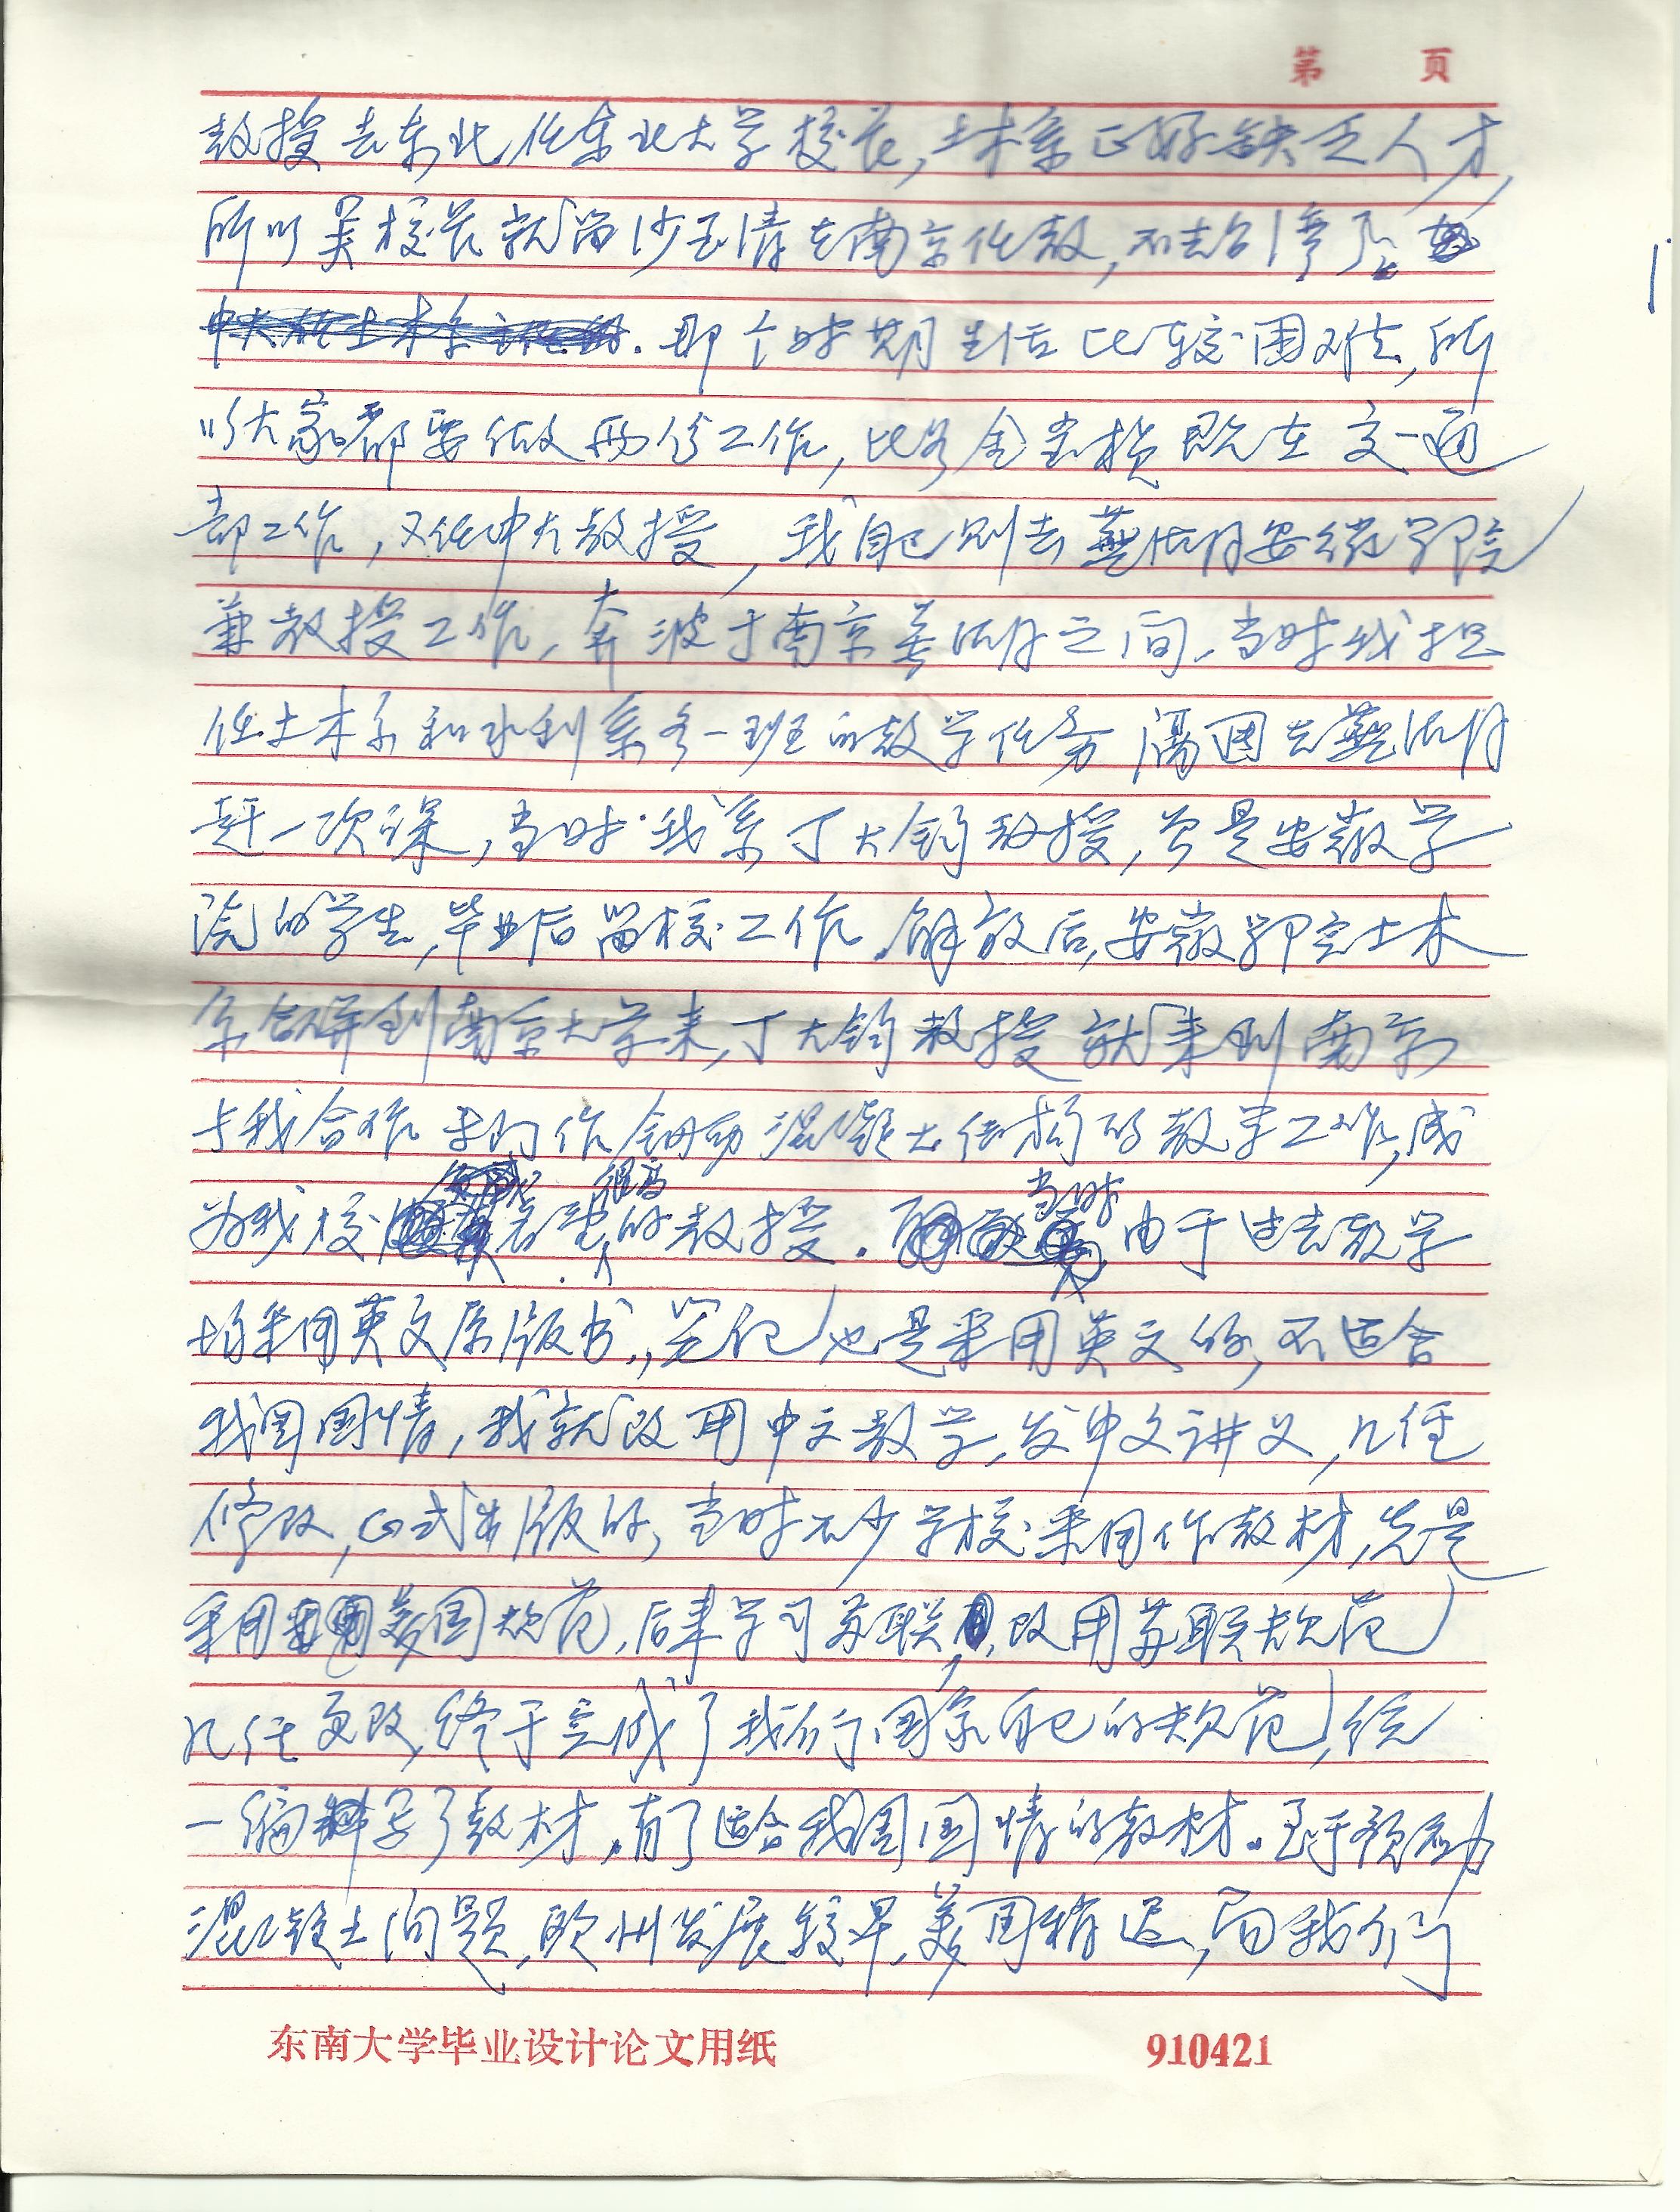 第 页
教授去东北任东北大学校长,土木系正好缺乏人才,
所以吴校长就留沙玉清在南京任教,不去台湾了。
那个时期生活比较困难,所
以大家都要做两份工作,比如金宝桢既在交通
部工作,又任中大教授,我自己则去芜湖安徽学院
兼教授工作,奔波于南京芜湖之间,当时我担
任土木系和水利系各一班的教学任务 隔周去芜湖
赶一次课,当时我系丁大钧教授,曾是安徽学
院的学生,毕业后留校工作。解放后,安徽学院土木
系合併到南京大学来,丁大钧教授就来到南京
与我合作 专门作钢筋混凝土结构的教学工作,成
为我校 很高的教授. 当时由于过去教学
均采用英文原版书,笔记也是采用英文的,不适合
我国国情,我就改用中文教学,发中文讲义,几经
修改,正式出版的,当时不少学校采用作教材,先是
采用美国规范,后来学习苏联,改用苏联规范
几经更改,终于完成了我们国家自己的规范,统
一编写了教材,有了适合我国国情的教材。至于预应力
混凝土问题,欧州发展较早,美国稍迟,而我们
东南大学毕业设计论文用纸 910421